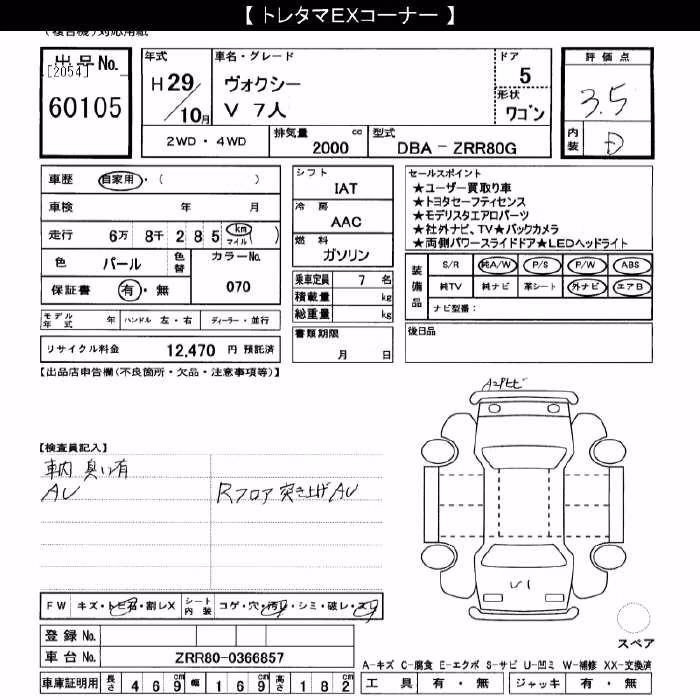 【 トレタマEXコーナー 】
(複合機)対応用紙
出品No.
[2054]
60105
年式
H 29 / 10 月
車名・グレード
ヴォクシー
V 7人
ドア
5
形状
ワゴン
評価点
3.5
内装
D
2WD・4WD
排気量 cc
2000
型式
DBA - ZRR80G
車歴 自家用・( )
車検 年 月
走行 6万 8千 2 8 5 km マイル ( )
色 パール 色替 カラーNo.
保証書 有・無 070
シフト
IAT
冷房
AAC
燃料
ガソリン
乗車定員 7 名
積載量 kg
総重量 kg
セールスポイント
★ユーザー買取り車
★トヨタセーフティセンス
★モデリスタエアロパーツ
★社外ナビ、TV★バックカメラ
★両側パワースライドドア★LEDヘッドライト
装備品
S/R 純A/W P/S P/W ABS
純TV 純ナビ 革シート 外ナビ エアB
ナビ型番:
モデル年式 年 ハンドル 左・右 ディーラー・並行
書類期限
月 日
後日品
リサイクル料金 12,470 円 預託済
【出品店申告欄(不良箇所・欠品・注意事項等)】
A2トビ
【検査員記入】
車内 臭い有
AU
Rフロア 突き上げ AU
U1
FW キズ・トビ石・割レX シート内装 コゲ・穴・汚レ・シミ・破レ・スレ
登録No.
車台No. ZRR80-0366857
スペア
A-キズ C-腐食 E-エクボ S-サビ U-凹ミ W-補修 XX-交換済
車庫証明用 長さ 4 6 9 cm 幅 1 6 9 cm 高さ 1 8 2 cm
工具 有・無 ジャッキ 有・無